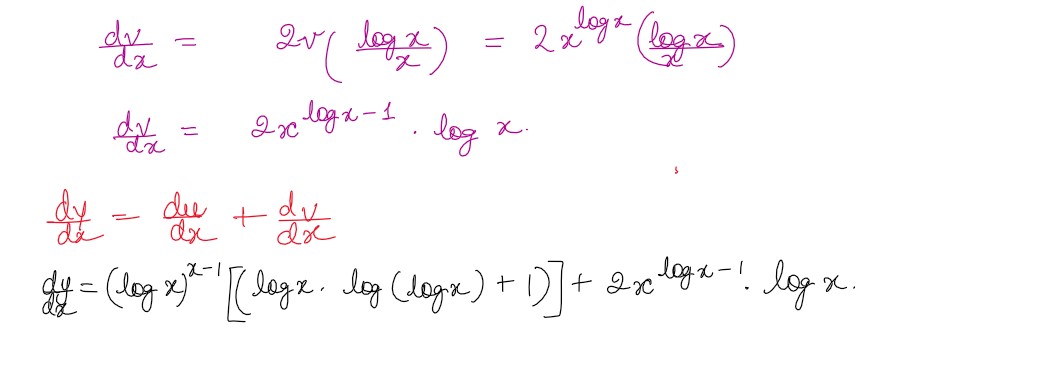 dv/dx = 2v(log x/x) = 2x^{log x}(log x/x)
dv/dx = 2x^{log x-1} · log x.
dy/dx = du/dx + dv/dx
dy/dx = (log x)^{x-1}[(log x. log (log x) + 1)] + 2x^{log x-1}. log x.